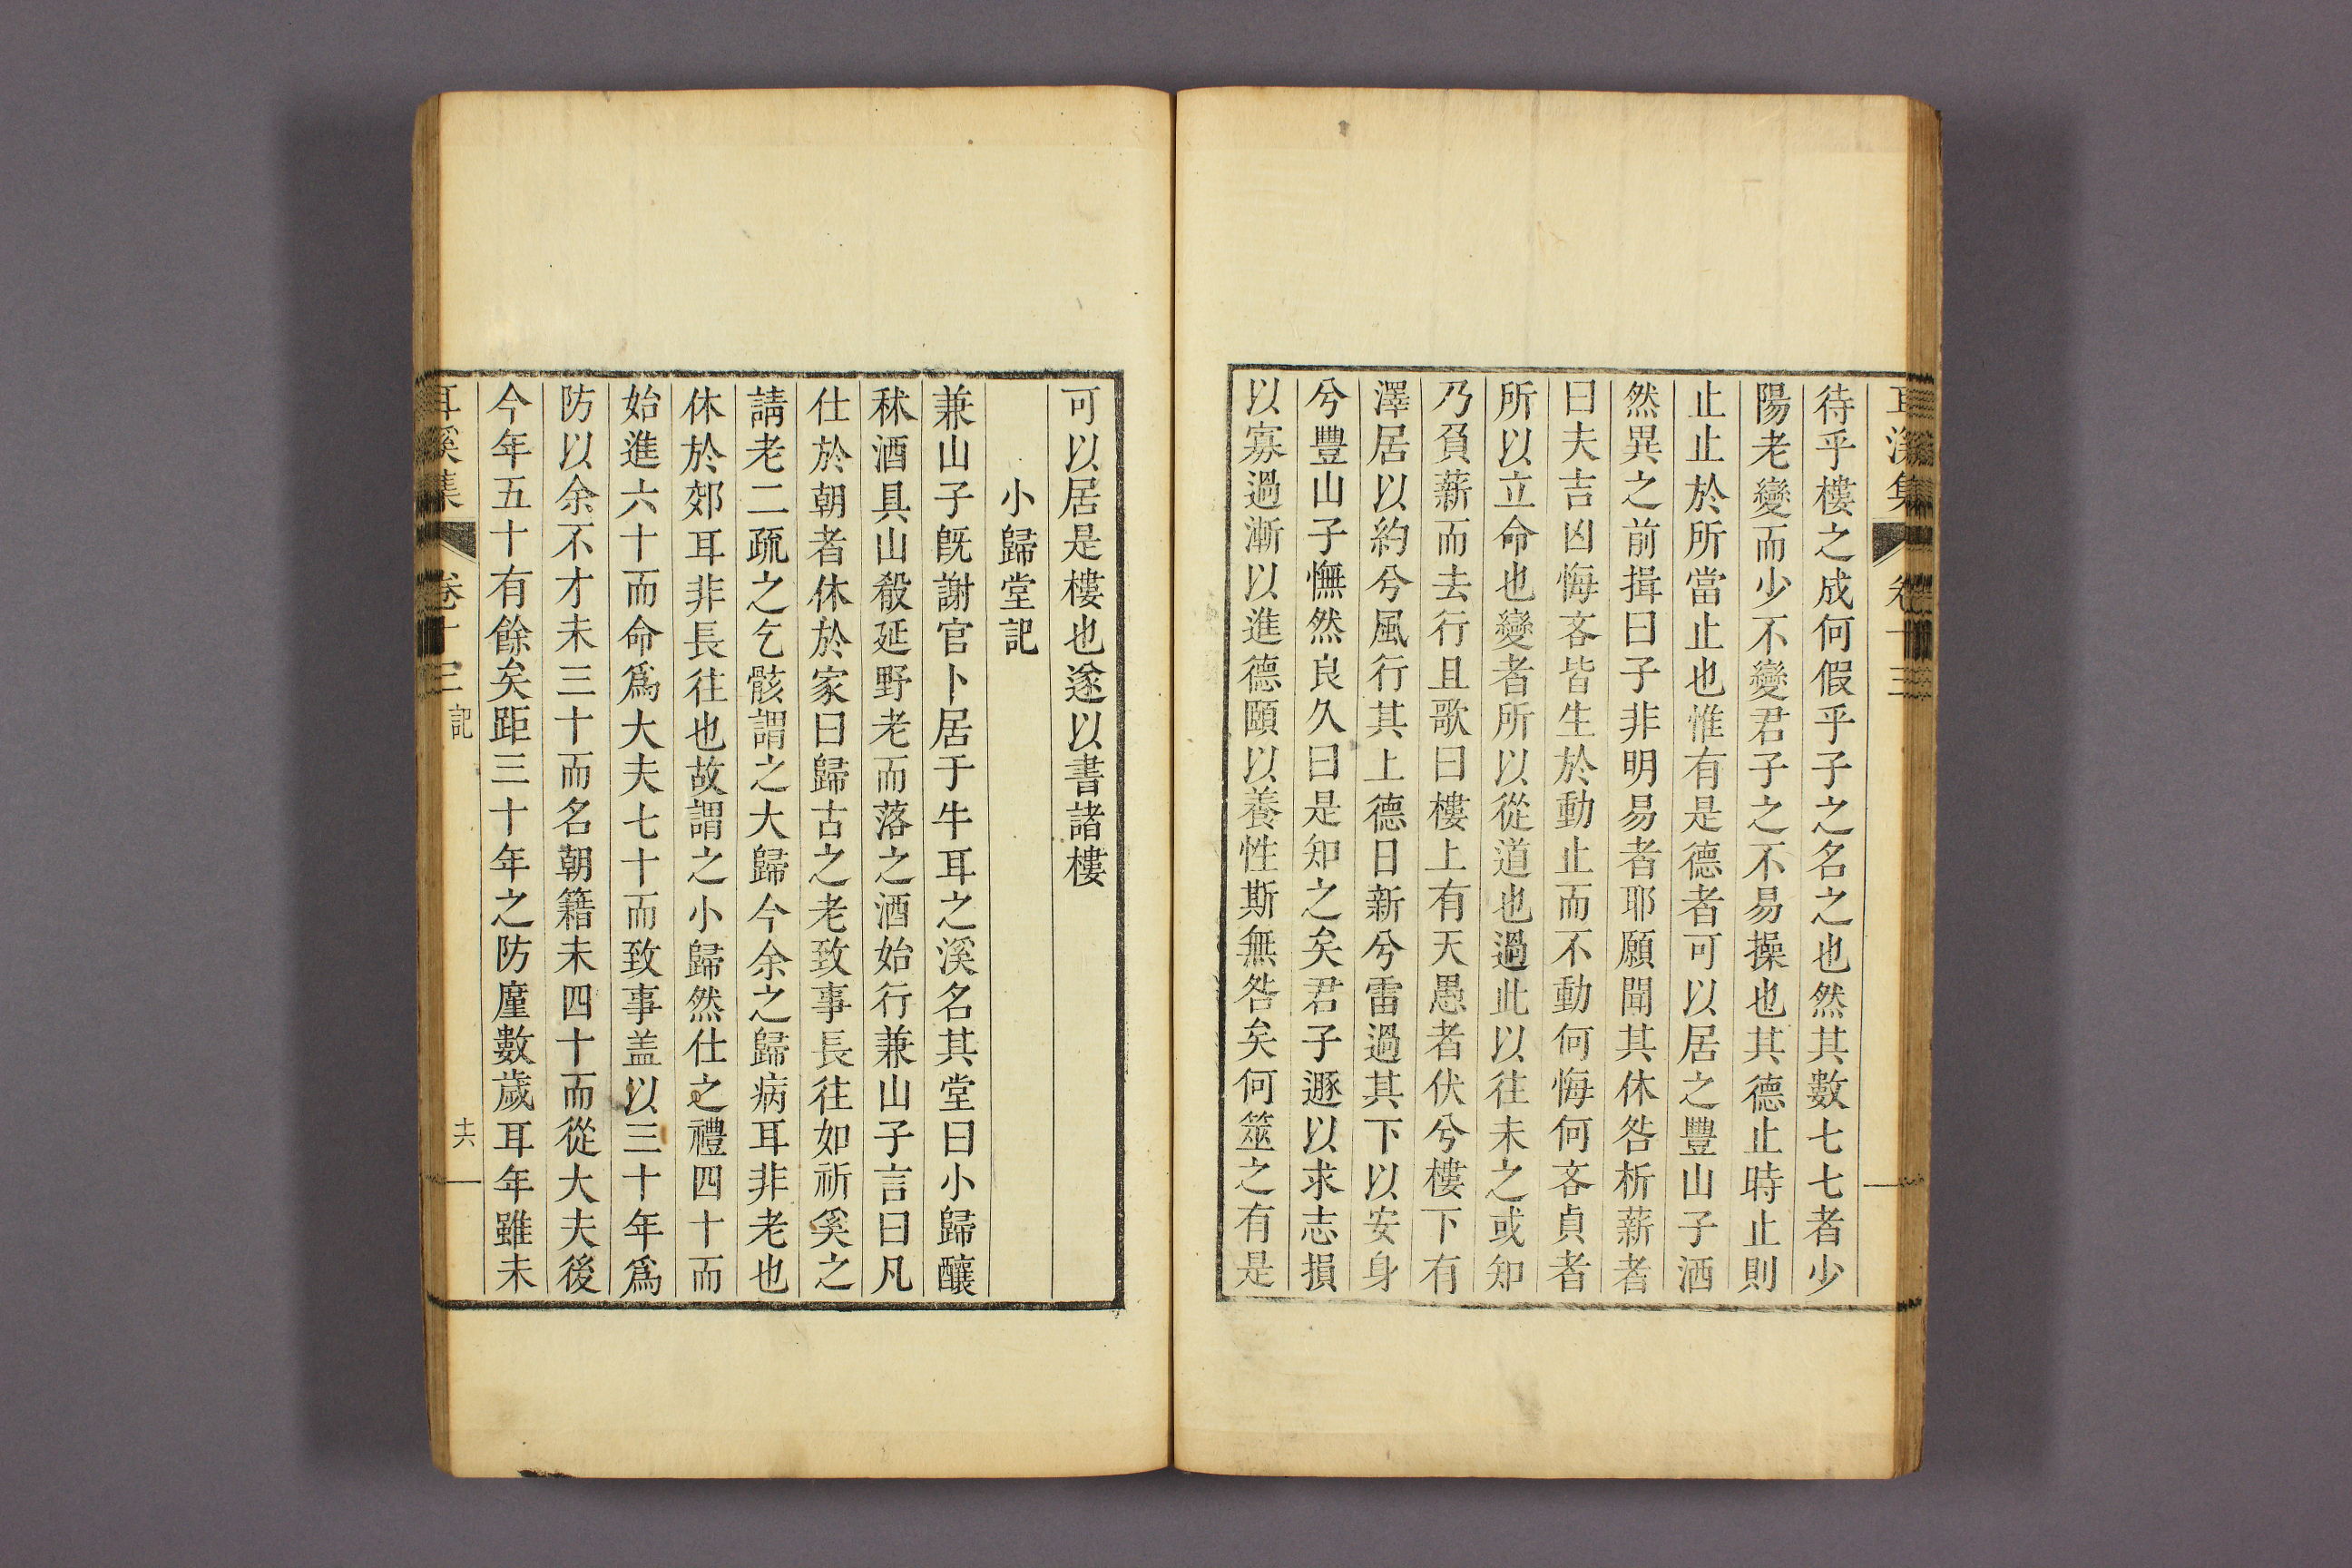 耳溪集 卷十三
待乎樓之成何假乎子之名之也然其數七七者少
陽老變而少不變君子之不易操也其德止時止則
止止於所當止也惟有是德者可以居之豐山子洒
然異之前揖曰子非明易者耶願聞其休咎析薪者
曰夫吉凶悔吝皆生於動止而不動何悔何吝貞者
所以立命也變者所以從道也過此以往未之或知
乃負薪而去行且歌曰樓上有天愚者伏兮樓下有
澤居以約兮風行其上德日新兮雷過其下以安身
兮豐山子憮然良久曰是知之矣君子遯以求志損
以寡過漸以進德頤以養性斯無咎矣何筮之有是
可以居是樓也遂以書諸樓
小歸堂記
兼山子旣謝官卜居于牛耳之溪名其堂曰小歸釀
秫酒具山殽延野老而落之酒始行兼山子言曰凡
仕於朝者休於家曰歸古之老致事長往如祈奚之
請老二疏之乞骸謂之大歸今余之歸病耳非老也
休於郊耳非長往也故謂之小歸然仕之禮四十而
始進六十而命爲大夫七十而致事盖以三十年爲
防以余不才未三十而名朝籍未四十而從大夫後
今年五十有餘矣距三十年之防廑數歲耳年雖未
耳溪集 卷十三 記 十六